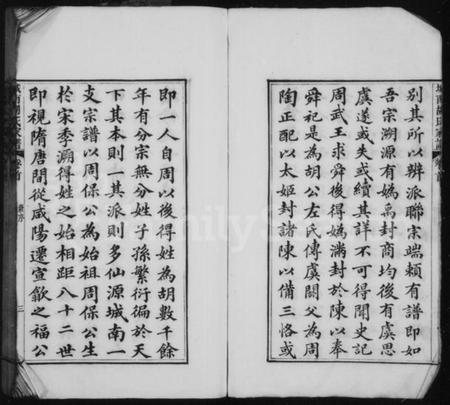 別其所以辨派聯宗端頼有譜即如
吾宗溯源有媯禹封商均後有虞思
虞遂或失或續其詳不可得聞史記
周武王求舜後得媯滿封於陳以奉
舜祀是為胡公左氏傳虞閼父為周
陶正配以太姬封諸陳以備三恪或
即一人自周以後得姓為胡數千餘
年有分宗無分姓子孫繁衍徧於天
下其本則一其派則多仙源城南一
支宗譜以周保公為始祖周保公生
於宋季溯得姓之始相距八十二世
即視隋唐間從咸陽遷宣歙之福公
三
FamilySearch